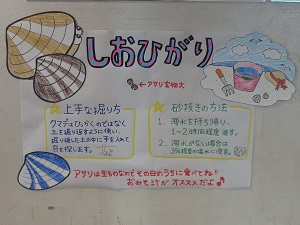 しおひがり
←アサリ実物大
上手な掘り方
クマデはひっかくのではなく
土を掘り返すように使い、
掘り返した土の中に手を入れて
貝を探します。
砂抜きの方法
1. 海水を持ち帰り、
1～2時間程度 浸す。
2. 海水がない場合は
3%程度の塩水に浸す。
アサリは生ものなのでその日のうちに食べてね!
おみそ汁が オススメだよ♪